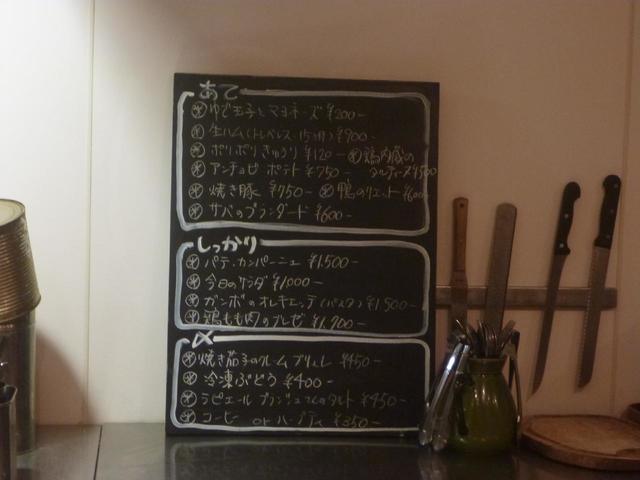 あて
ゆで玉子とマヨネーズ ¥200-
生ハム(トレベレス・15ヶ月) ¥900-
ポリポリきゅうり ¥120- 鶏内蔵の
アンチョビ・ポテト ¥750- タルティーヌ ¥500
焼き豚 ¥950- 鴨のリエット ¥600-
サバのブランダード ¥600-
しっかり
パテ・カンパーニュ ¥1.500-
今日のサンダ ¥1000-
ガンボのオレキエッテ(パスタ) ¥1.500-
鶏もも肉のブレゼ ¥1.900-
〆
焼き茄子のクレームブリュレ ¥450-
冷凍ぶどう ¥400-
ラピエール ブランジュさんのタルト ¥450-
コーヒー or ハーブティ ¥350-